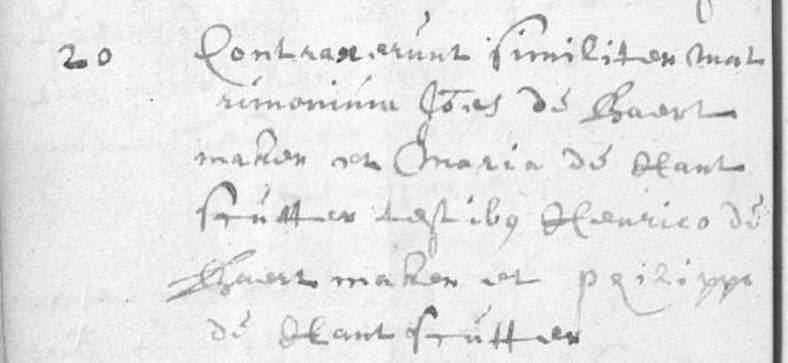 20 Contraxerunt similiter mat
rimonium Jōes de Raert
maker et Maria de Hant
scutter testibq Henrico de
Raert maker et philippo
de Hant scutter